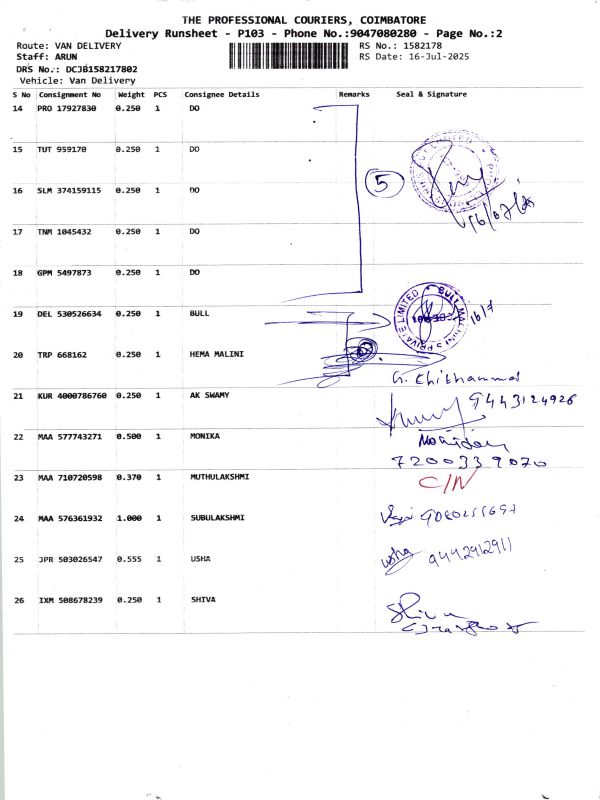 THE PROFESSIONAL COURIERS, COIMBATORE
Delivery Runsheet - P103 - Phone No.:9047080280 - Page No.:2
Route: VAN DELIVERY
RS No.: 1582178
Staff: ARUN
RS Date: 16-Jul-2025
DRS No.: DCJB158217802
Vehicle: Van Delivery
S No Consignment No Weight PCS Consignee Details Remarks Seal & Signature
14 PRO 17927830 0.250 1 DO
15 TUT 959170 0.250 1 DO
5
16 SLM 374159115 0.250 1 DO
16/07/25
17 TNM 1045432 0.250 1 DO
18 GPM 5497873 0.250 1 DO
19 DEL 530526634 0.250 1 BULL
BULL MACHINES PRIVATE LIMITED
16/7
20 TRP 668162 0.250 1 HEMA MALINI
21 KUR 4000786760 0.250 1 AK SWAMY
9443124926
22 MAA 577743271 0.500 1 MONIKA
7200339070
23 MAA 710720598 0.370 1 MUTHULAKSHMI
C/N
24 MAA 576361932 1.000 1 SUBULAKSHMI
25 JPR 503026547 0.555 1 USHA
usha 9442912911
26 IXM 508678239 0.250 1 SHIVA
Shiva